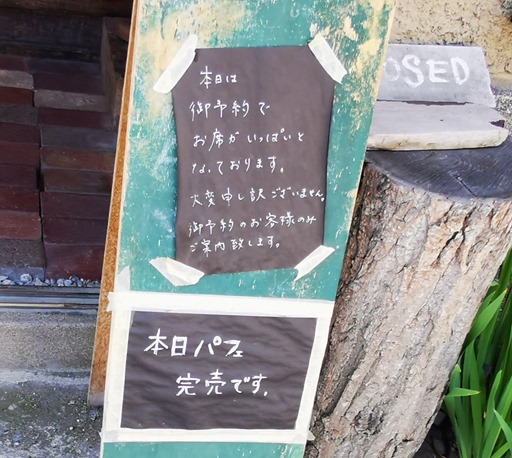 本日は
御予約で
お席がいっぱいと
なっております。
大変申し訳ございません。
御予約のお客様のみ
ご案内致します。
本日パフェ
完売です。
OSED